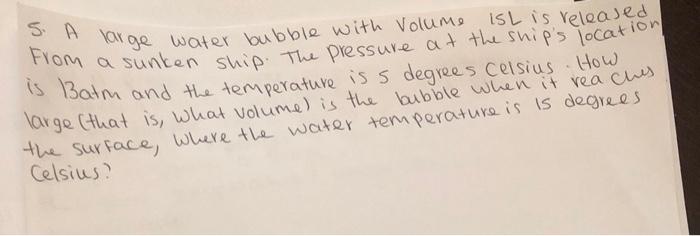 5. A large water bubble with Volume 15L is released
From a sunken ship. The pressure at the ship's location
is 13atm and the temperature is 5 degrees Celsius. How
large (that is, what volume) is the bubble when it reaches
the surface, where the water temperature is 15 degrees
Celsius?